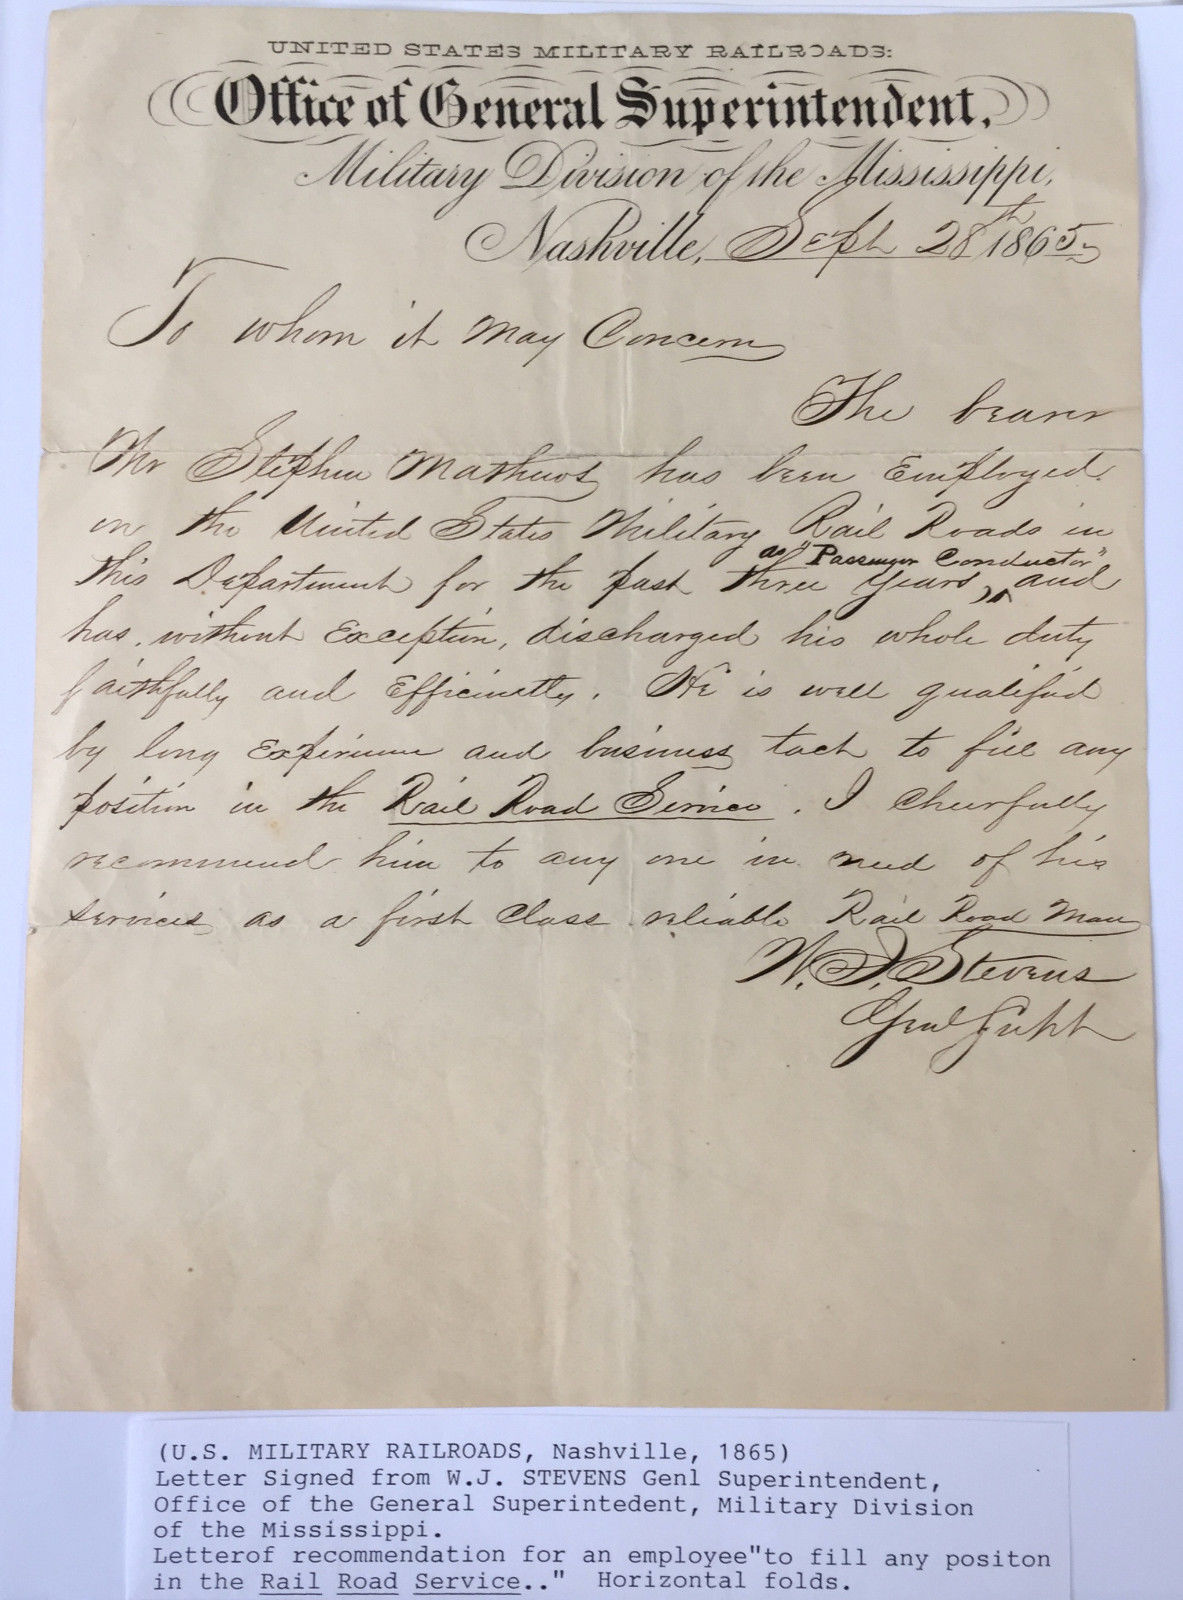 UNITED STATES MILITARY RAILROADS:
Office of General Superintendent,
Military Division of the Mississippi,
Nashville, Sept 28th 1865
To whom it May Concern
The bearer
Mr Stephen Mathews has been Employed
on the United States Military Rail Roads in
as "Passenger Conductor"
this Department for the past three years, and
has, without Exception, discharged his whole duty
faithfully and Efficiently. He is well qualified
by long Experience and business tact to fill any
position in the Rail Road Service. I Cheerfully
recommend him to any one in need of his
services as a first Class reliable Rail Road Man
W. J. Stevens
Genl Supt
(U.S. MILITARY RAILROADS, Nashville, 1865)
Letter Signed from W.J. STEVENS Genl Superintendent,
Office of the General Superintedent, Military Division
of the Mississippi.
Letterof recommendation for an employee"to fill any positon
in the Rail Road Service.." Horizontal folds.